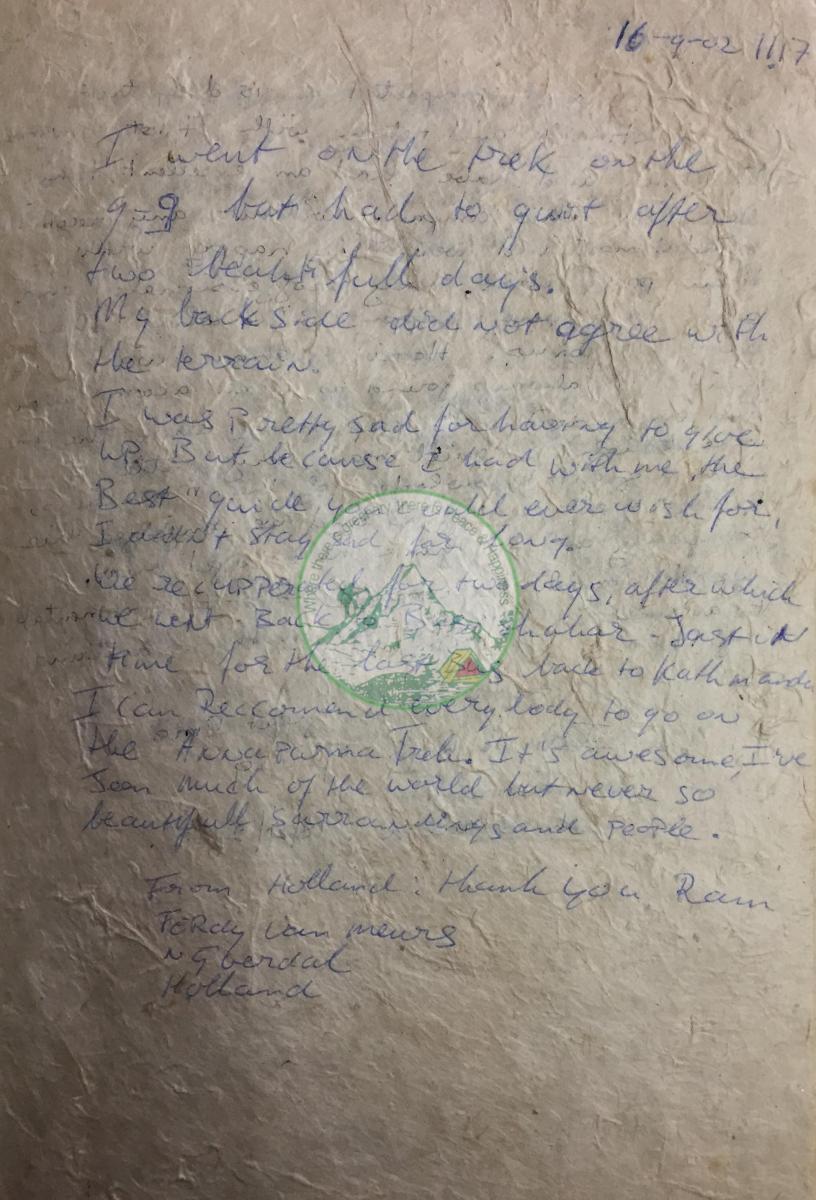 16-9-02 11,17
I went on the trek on the
9-9 but had to quit after
two beautifull days.
My back side did not agree with
the terrain.
I was Pretty sad for having to give
up. But because I had with me the
Best "guide you could ever wish for,
I didn't stay sad for long.
We recupperated for two days, after which
we went Back to - Just iN
time for the last Bus back to Kathmandu
I can Reccomend everybody to go on
the "Annapurna Trek. It's awesome, I've
Seen much of the world but never so
beautifull surroundings and People.
From Holland: thank you Ram
FERdy van meurs
Holland
Where there is Greenary there is Peace & Happiness